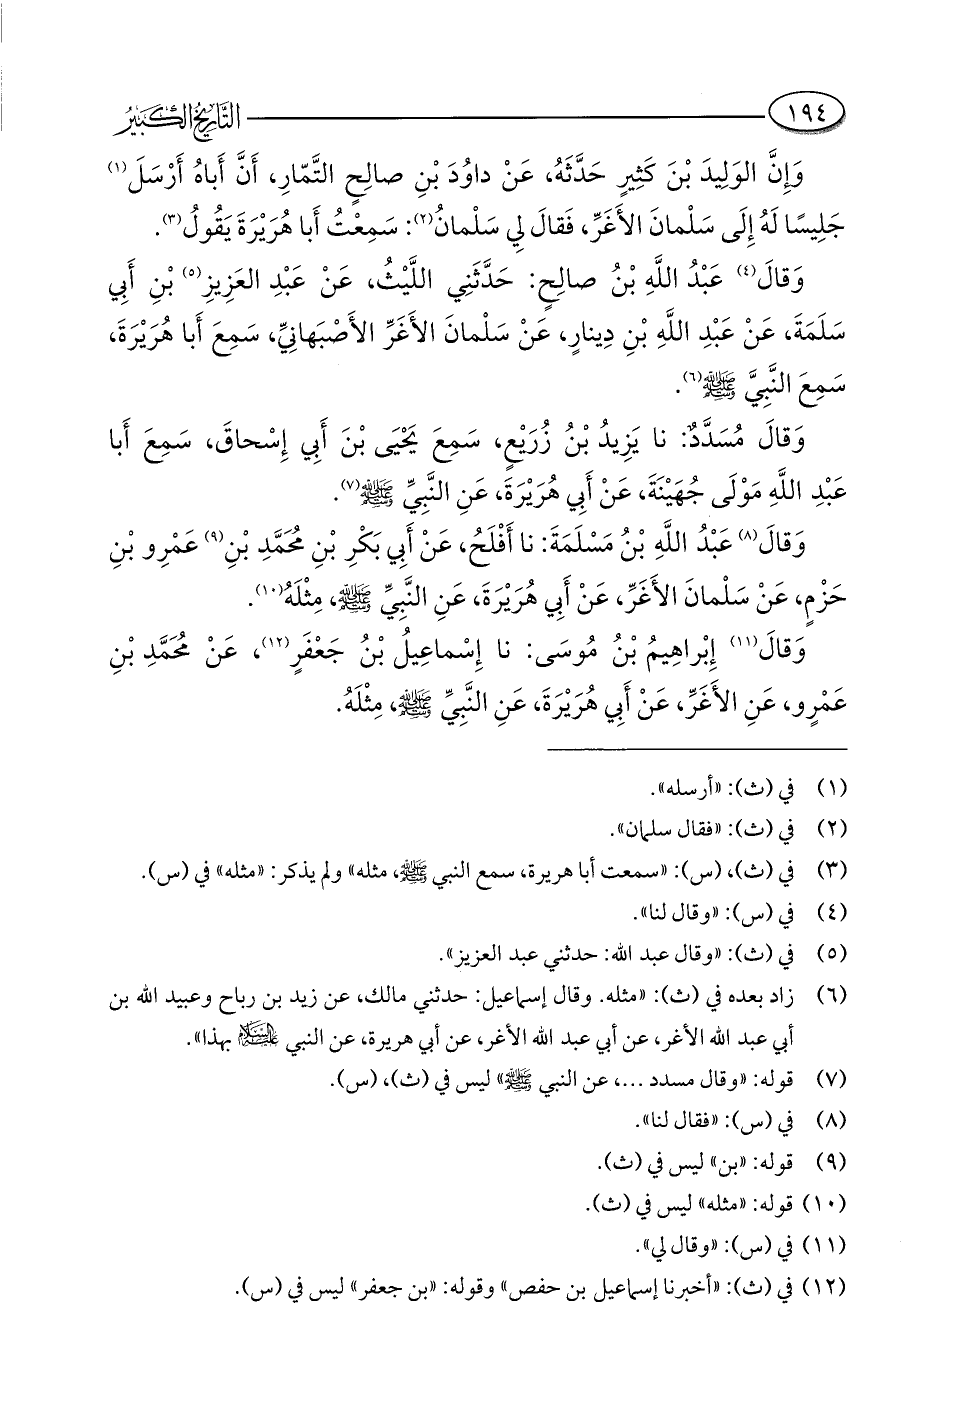 ١٩٤ التَّارِيخُ الكَبِيرُ
وَإِنَّ الوَلِيدَ بْنَ كَثِيرٍ حَدَّثَهُ، عَنْ داوُدَ بْنِ صالِحٍ التَّمّارِ، أَنَّ أَباهُ أَرْسَلَ(١)
جَلِيسًا لَهُ إِلَى سَلْمانَ الأَغَرِّ، فَقالَ لِي سَلْمانُ(٢): سَمِعْتُ أَبا هُرَيْرَةَ يَقُولُ(٣).
وَقالَ(٤) عَبْدُ اللَّهِ بْنُ صالِحٍ: حَدَّثَنِي اللَّيْثُ، عَنْ عَبْدِ العَزِيزِ(٥) بْنِ أَبِي
سَلَمَةَ، عَنْ عَبْدِ اللَّهِ بْنِ دِينارٍ، عَنْ سَلْمانَ الأَغَرِّ الأَصْبَهانِيِّ، سَمِعَ أَبا هُرَيْرَةَ،
سَمِعَ النَّبِيَّ ﷺ(٦).
وَقالَ مُسَدَّدٌ: نا يَزِيدُ بْنُ زُرَيْعٍ، سَمِعَ يَحْيَى بْنَ أَبِي إِسْحاقَ، سَمِعَ أَبا
عَبْدِ اللَّهِ مَوْلَى جُهَيْنَةَ، عَنْ أَبِي هُرَيْرَةَ، عَنِ النَّبِيِّ ﷺ(٧).
وَقالَ(٨) عَبْدُ اللَّهِ بْنُ مَسْلَمَةَ: نا أَفْلَحُ، عَنْ أَبِي بَكْرِ بْنِ مُحَمَّدِ بْنِ(٩) عَمْرِو بْنِ
حَزْمٍ، عَنْ سَلْمانَ الأَغَرِّ، عَنْ أَبِي هُرَيْرَةَ، عَنِ النَّبِيِّ ﷺ، مِثْلَهُ(١٠).
وَقالَ(١١) إِبْراهِيمُ بْنُ مُوسَى: نا إِسْماعِيلُ بْنُ جَعْفَرٍ(١٢)، عَنْ مُحَمَّدِ بْنِ
عَمْرٍو، عَنِ الأَغَرِّ، عَنْ أَبِي هُرَيْرَةَ، عَنِ النَّبِيِّ ﷺ، مِثْلَهُ.
(١) في (ث): «أرسله».
(٢) في (ث): «فقال سلمان».
(٣) في (ث)، (س): «سمعت أبا هريرة، سمع النبي ﷺ، مثله» ولم يذكر: «مثله» في (س).
(٤) في (س): «وقال لنا».
(٥) في (ث): «وقال عبد الله: حدثني عبد العزيز».
(٦) زاد بعده في (ث): «مثله. وقال إسماعيل: حدثني مالك، عن زيد بن رباح وعبيد الله بن
أبي عبد الله الأغر، عن أبي عبد الله الأغر، عن أبي هريرة، عن النبي عليه السلام بهذا».
(٧) قوله: «وقال مسدد ...، عن النبي ﷺ» ليس في (ث)، (س).
(٨) في (س): «فقال لنا».
(٩) قوله: «بن» ليس في (ث).
(١٠) قوله: «مثله» ليس في (ث).
(١١) في (س): «وقال لي».
(١٢) في (ث): «أخبرنا إسماعيل بن حفص» وقوله: «بن جعفر» ليس في (س).